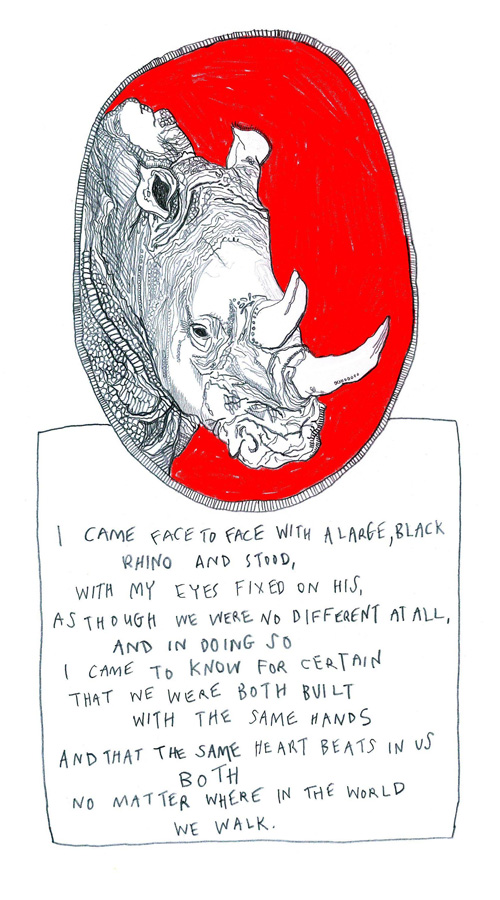 I CAME FACE TO FACE WITH A LARGE, BLACK
RHINO AND STOOD,
WITH MY EYES FIXED ON HIS,
AS THOUGH WE WERE NO DIFFERENT AT ALL,
AND IN DOING SO
I CAME TO KNOW FOR CERTAIN
THAT WE WERE BOTH BUILT
WITH THE SAME HANDS
AND THAT THE SAME HEART BEATS IN US
BOTH
NO MATTER WHERE IN THE WORLD
WE WALK.